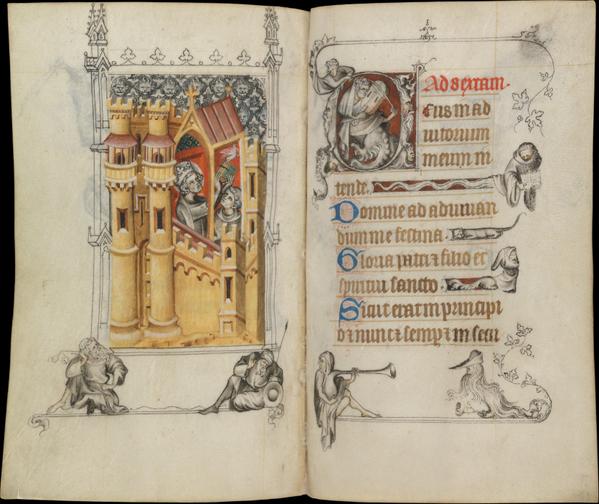 Ad sextam.
Eus in ad
iutorium
meum in
tende.
Domine ad adiuuan
dum me festina.
Gloria patri et filio et
spiritui sancto
Sicut erat in principi
o et nunc et semper et in secu